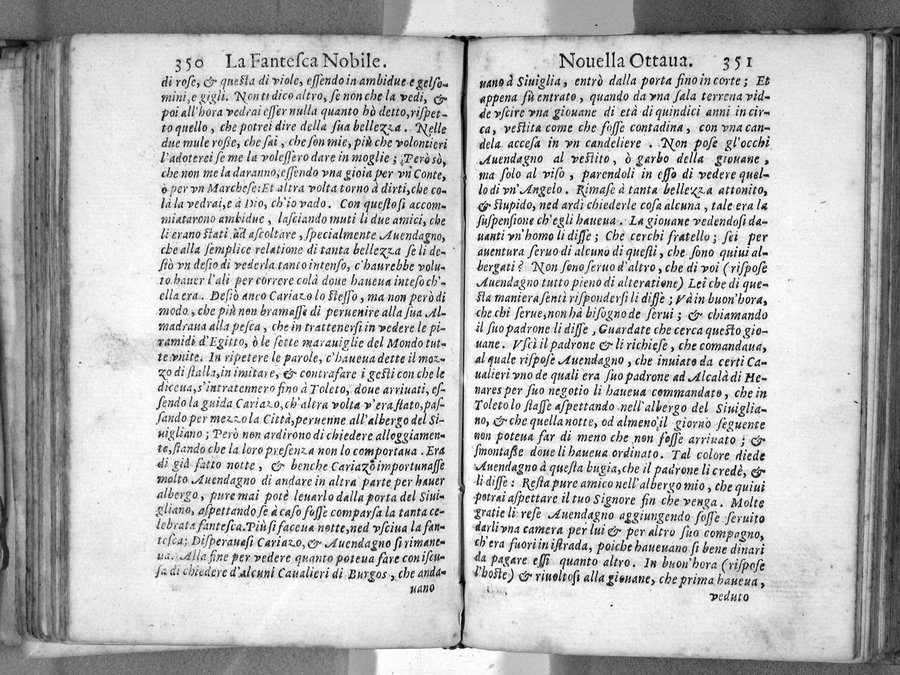 350 La Fantesca Nobile.
di rose, & questa di viole, essendo in ambidue e gelso-
mini, e gigli. Non ti dico altro, se non che la vedi, &
poi all'hora vedrai esser nulla quanto hò detto, rispet-
to quello, che potrei dire della sua bellezza. Nelle
due mule rosse, che sai, che son mie, più che volontieri
l'adoterei se me la volessero dare in moglie; Però sò,
che non me la daranno, essendo vna gioia per vn Conte,
ò per vn Marchese: Et altra volta torno à dirti, che co-
là la vedrai, e à Dio, ch'io vado. Con questo si accom-
miatarono ambidue, lasciando muti li due amici, che
li erano stati ad ascoltare, specialmente Auendagno,
che alla semplice relatione di tanta bellezza se li de-
stò vn desio di vederla tanto intenso, c'haurebbe volu-
to hauer l'ali per correre colà doue haueua inteso ch'-
ella era. Desiò anco Cariazo lo stesso, ma non però di
modo, che più non bramasse di peruenire alla sua Al-
madraua alla pesca, che in trattenersi in vedere le pi-
ramidi d'Egitto, ò le sette marauiglie del Mondo tut-
te vnite. In ripetere le parole, c'haueua dette il moz-
zo di stalla, in imitare, & contrafare i gesti con che le
diceua, s'intratennero fino à Toleto, doue arriuati, es-
sendo la guida Cariazo, ch'altra volta v'era stato, pas-
sando per mezzo la Città, peruenne all'albergo del Si-
uigliano; Però non ardirono di chiedere alloggiamen-
te, stando che la loro presenza non lo comportaua. Era
di già fatto notte, & benche Cariazo importunasse
molto Auendagno di andare in altra parte per hauer
albergo, pure mai potè leuarlo dalla porta del Siui-
gliano, aspettando se à caso fosse comparsa la tanto ce-
lebrata fantesca. Più si faceua notte, ned vsciua la fan-
tesca; Disperauasi Cariazo, & Auendagno si rimane-
ua. Alla fine per vedere quanto poteua fare con iscu-
sa di chiedere d'alcuni Caualieri di Burgos, che anda-
uano
Nouella Ottaua. 351
uano à Siuiglia, entrò dalla porta fino in corte; Et
appena fù entrato, quando da vna sala terrena vid-
de vscire vna giouane di età di quindici anni in cir-
ca, vestita come che fosse contadina, con vna can-
dela accesa in vn candeliere. Non pose gl'occhi
Auendagno al vestito, ò garbo della giouane,
ma solo al viso, parendoli in esso di vedere quel-
lo di vn'Angelo. Rimase à tanta bellezza attonito,
& stupido, ned ardì chiederle cosa alcuna, tale era la
suspensione ch'egli haueua. La giouane vedendosi da-
uanti vn'homo li disse; Che cerchi fratello; sei per
auentura seruo di alcuno di questi, che sono quiui al-
bergati? Non sono seruo d'altro, che di voi (rispose
Auendagno tutto pieno di alteratione) Lei che di que-
sta maniera sentì rispondersi li disse; Và in buon'hora,
che chi serue, non hà bisogno de serui; & chiamando
il suo padrone li disse, Guardate che cerca questo gio-
uane. Vscì il padrone & li richiese, che comandaua,
al quale rispose Auendagno, che inuiato da certi Ca-
ualieri vno de quali era suo padrone ad Alcalà di He-
nares per suo negotio li haueua commandato, che in
Toleto lo stasse aspettando nell'albergo del Siuiglia-
no, & che quella notte, od almeno, il giorno seguente
non poteua far di meno che non fosse arriuato; &
smontasse doue li haueua ordinato. Tal colore diede
Auendagno à questa bugia, che il padrone li credè, &
li disse: Resta pure amico nell'albergo mio, che quiui
potrai aspettare il tuo Signore fin che venga. Molte
gratie li rese Auendagno aggiungendo fosse seruito
darli vna camera per lui & per altro suo compagno,
ch'era fuori in istrada, poiche haueuano sì bene dinari
da pagare essi quanto altro. In buon'hora (rispose
l'hoste) & riuoltosi alla giouane, che prima haueua,
veduto